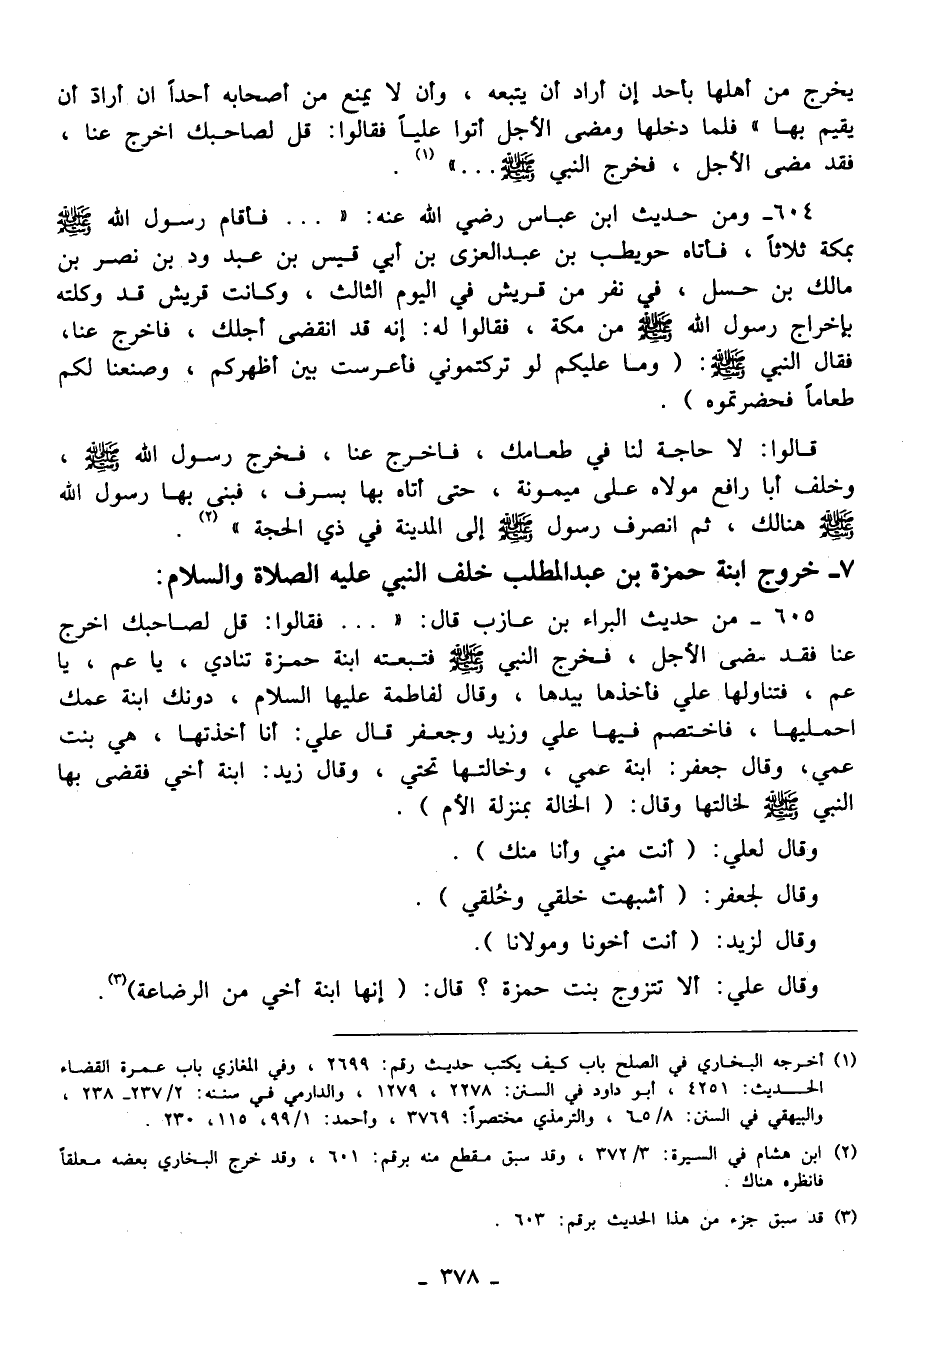 يخرج من أهلها بأحد إن أراد أن يتبعه ، وأن لا يمنع من أصحابه أحداً ان أرادّ أن
يقيم بها » فلما دخلها ومضى الأجل أتوا علياً فقالوا: قل لصاحبك اخرج عنا ،
فقد مضى الأجل ، فخرج النبي ﷺ...» (١) .
٦٠٤ـ ومن حديث ابن عباس رضي الله عنه: « ... فأقام رسول الله ﷺ
بمكة ثلاثاً ، فأتاه حويطب بن عبدالعزى بن أبي قيس بن عبد ود بن نصر بن
مالك بن حسل ، في نفر من قريش في اليوم الثالث ، وكانت قريش قد وكلته
بإخراج رسول الله ﷺ من مكة ، فقالوا له: إنه قد انقضى أجلك ، فاخرج عنا،
فقال النبي ﷺ: ( وما عليكم لو تركتموني فأعرست بين أظهركم ، وصنعنا لكم
طعاماً فحضرتموه ) .
قالوا: لا حاجة لنا في طعامك ، فاخرج عنا ، فخرج رسول الله ﷺ ،
وخلف أبا رافع مولاه على ميمونة ، حتى أتاه بها بسرف ، فبنى بها رسول الله
ﷺ هنالك ، ثم انصرف رسول ﷺ إلى المدينة في ذي الحجة » (٢) .
٧ـ خروج ابنة حمزة بن عبدالمطلب خلف النبي عليه الصلاة والسلام:
٦٠٥ ـ من حديث البراء بن عازب قال: « ... فقالوا: قل لصاحبك اخرج
عنا فقد مضى الأجل ، فخرج النبي ﷺ فتبعته ابنة حمزة تنادي ، يا عم ، يا
عم ، فتناولها علي فأخذها بيدها ، وقال لفاطمة عليها السلام ، دونك ابنة عمك
احمليها ، فاختصم فيها علي وزيد وجعفر قال علي: أنا أخذتها ، هي بنت
عمي، وقال جعفر: ابنة عمي ، وخالتها تحتي ، وقال زيد: ابنة أخي فقضى بها
النبي ﷺ لخالتها وقال: ( الخالة بمنزلة الأم ) .
وقال لعلي: ( أنت مني وأنا منك ) .
وقال لجعفر: ( أشبهت خلقي وخُلقي ) .
وقال لزيد: ( أنت أخونا ومولانا ).
وقال علي: ألا تتزوج بنت حمزة ؟ قال: ( إنها ابنة أخي من الرضاعة)(٣).
(١) أخرجه البخاري في الصلح باب كيف يكتب حديث رقم: ٢٦٩٩ ، وفي المغازي باب عمرة القضاء
الحديث: ٤٢٥١ ، أبو داود في السنن: ٢٢٧٨ ، ١٢٧٩ ، والدارمي في سننه: ٢٣٧/٢ـ ٢٣٨ ،
والبيهقي في السنن: ٥/٨ـ٦ ، والترمذي مختصراً: ٣٧٦٩ ، وأحمد: ٩٩/١، ١١٥، ٢٣٠ .
(٢) ابن هشام في السيرة: ٣٧٢/٣ ، وقد سبق مقطع منه برقم: ٦٠١ ، وقد خرج البخاري بعضه معلقاً
فانظره هناك .
(٣) قد سبق جزء من هذا الحديث برقم: ٦٠٣ .
ـ ٣٧٨ ـ